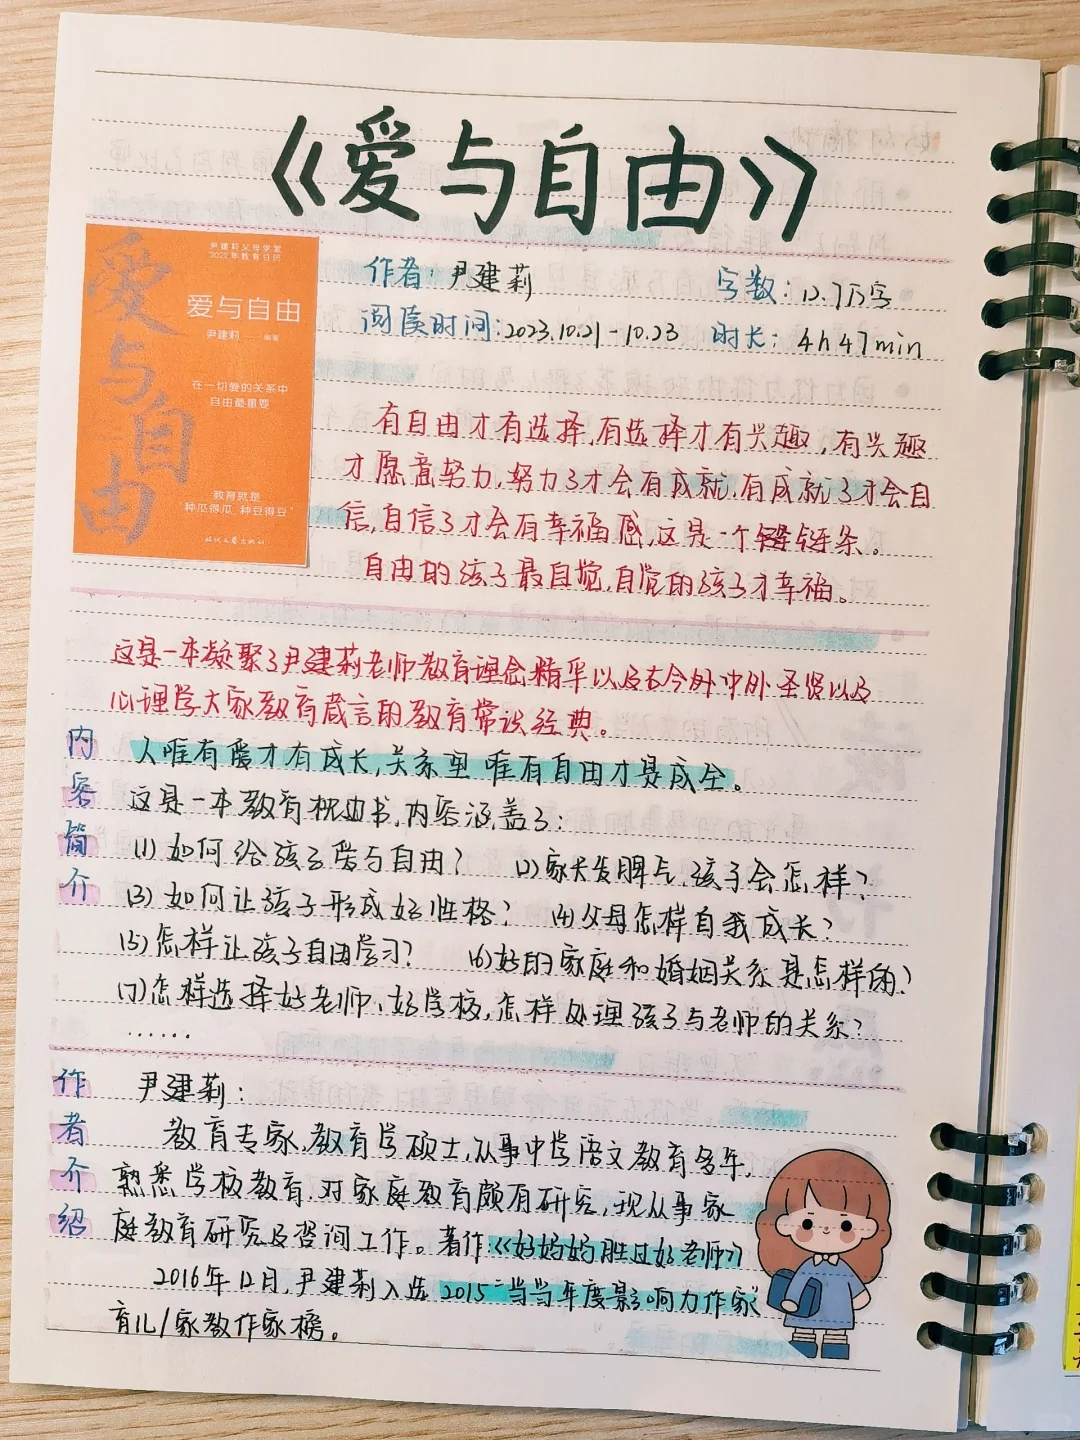 《爱与自由》
尹建莉父母学堂
2022年教育日历
爱与自由
爱与自由
尹建莉 编著
在一切爱的关系中
自由最重要
教育就是
“种瓜得瓜，种豆得豆”
时代文艺出版社
作者：尹建莉 字数：12.7万字
阅读时间：2023.10.21-10.23 时长：4h47min
有自由才有选择，有选择才有兴趣，有兴趣
才愿意努力，努力了才会有成就，有成就了才会自
信，自信了才会有幸福感，这是一个链条。
自由的孩子最自觉，自觉的孩子才幸福。
内容简介
这是一本凝聚了尹建莉老师教育理念精华以及古今外中外圣贤以及
心理学大家教育箴言的教育常识经典。
人唯有爱才有成长，关系里唯有自由才是成全。
这是一本教育枕边书，内容涵盖了：
(1)如何给孩子爱与自由？ (2)家长发脾气，孩子会怎样？
(3)如何让孩子形成好性格？ (4)父母怎样自我成长？
(5)怎样让孩子自由学习？ (6)好的家庭和婚姻关系是怎样的？
(7)怎样选择好老师，好学校，怎样处理孩子与老师的关系？
……
作者介绍
尹建莉：
教育专家，教育学硕士，从事中学语文教育多年，
熟悉学校教育，对家庭教育颇有研究，现从事家
庭教育研究及咨询工作。著作：《好妈妈胜过好老师》
2016年12月，尹建莉入选2015“当当年度影响力作家”
育儿/家教作家榜。